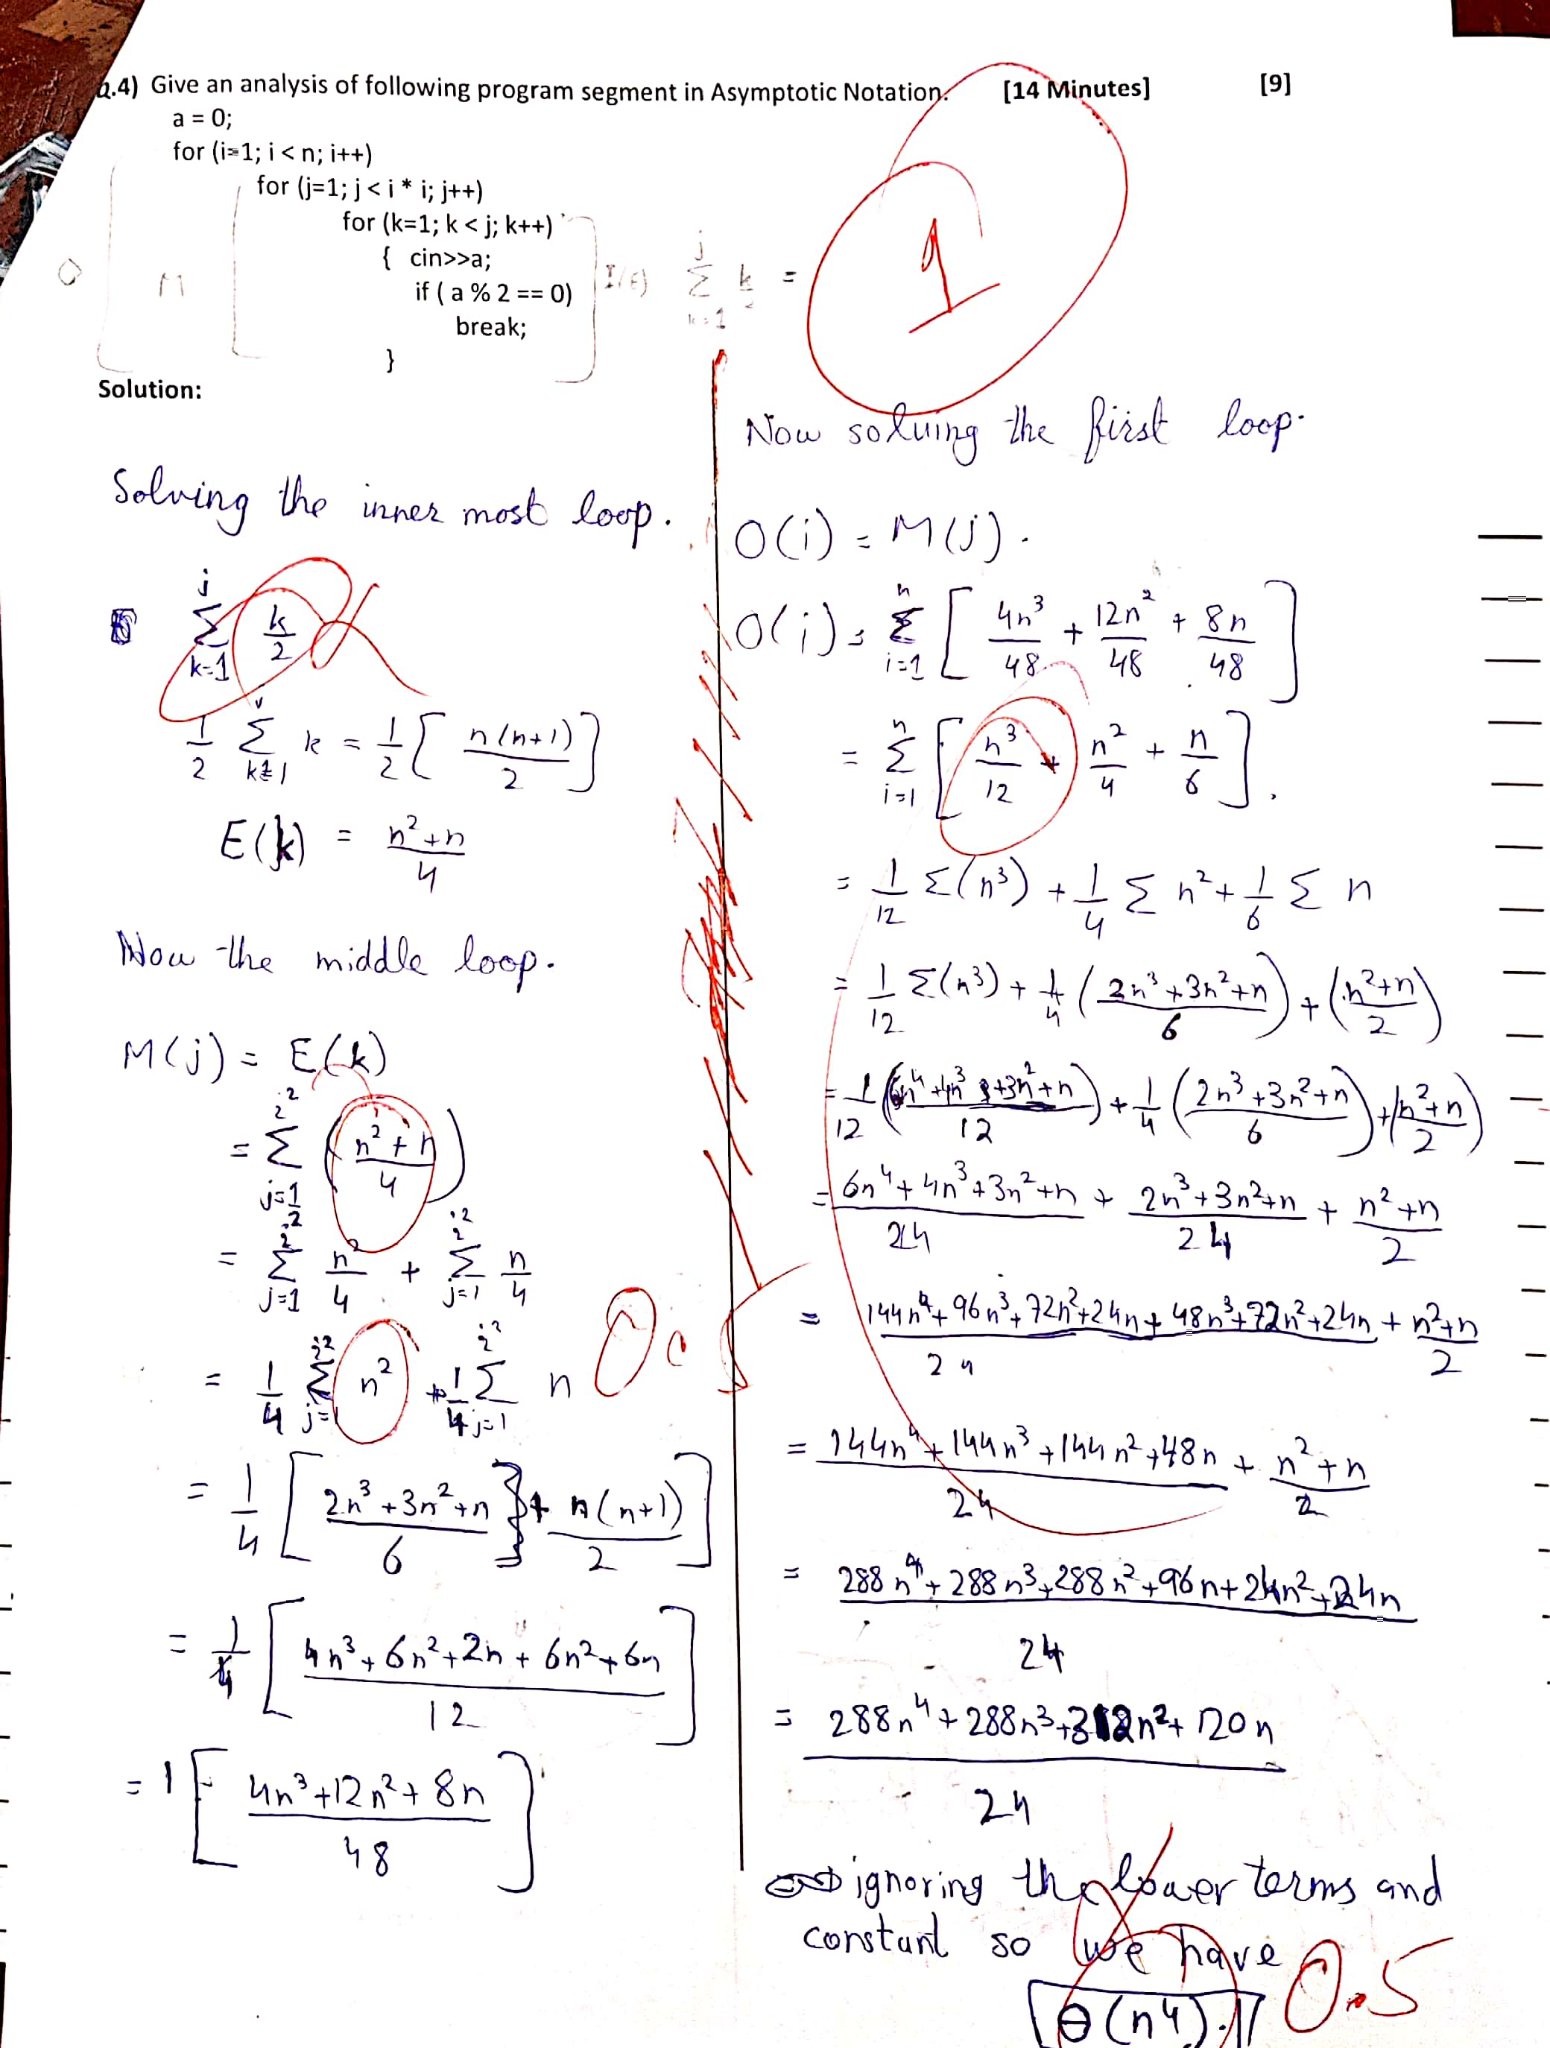 Q.4) Give an analysis of following program segment in Asymptotic Notation. [14 Minutes] [9]
a = 0;
for (i=1; i < n; i++)
for (j=1; j < i * i; j++)
for (k=1; k < j; k++)
{ cin>>a;
if ( a % 2 == 0)
break;
}
O
M
I(E) Σ_{k=1}^{j} k/2 =
1
Solution:
Solving the inner most loop.
Σ_{k=1}^{j} k/2
1/2 Σ_{k=1} k = 1/2 [ n(n+1)/2 ]
E(k) = (n²+n)/4
Now the middle loop.
M(j) = E(k)
= Σ_{j=1}^{i²} ( (n²+n)/4 )
= Σ_{j=1}^{i²} n²/4 + Σ_{j=1}^{i²} n/4
= 1/4 Σ_{j=1}^{i²} n² + 1/4 Σ_{j=1}^{i²} n
0.5
= 1/4 [ (2n³+3n²+n)/6 } + n(n+1)/2 ]
= 1/4 [ (4n³+6n²+2n+6n²+6n)/12 ]
= 1 [ (4n³+12n²+8n)/48 ]
Now solving the first loop.
O(i) = M(j).
O(i) = Σ_{i=1}^{n} [ 4n³/48 + 12n²/48 + 8n/48 ]
= Σ_{i=1}^{n} [ n³/12 + n²/4 + n/6 ].
= 1/12 Σ(n³) + 1/4 Σ n² + 1/6 Σ n
= 1/12 Σ(n³) + 1/4 ( (2n³+3n²+n)/6 ) + ( (n²+n)/2 )
= 1/12 ( (6n⁴+4n³+3n²+n)/12 ) + 1/4 ( (2n³+3n²+n)/6 ) + ( (n²+n)/2 )
= (6n⁴+4n³+3n²+n)/24 + (2n³+3n²+n)/24 + (n²+n)/2
= (144n⁴+96n³+72n²+24n+48n³+72n²+24n)/24 + (n²+n)/2
= (144n⁴+144n³+144n²+48n)/24 + (n²+n)/2
= (288n⁴+288n³+288n²+96n+24n²+24n)/24
= (288n⁴+288n³+312n²+120n)/24
ignoring the lower terms and
constant so we have
θ(n⁴).
0.5